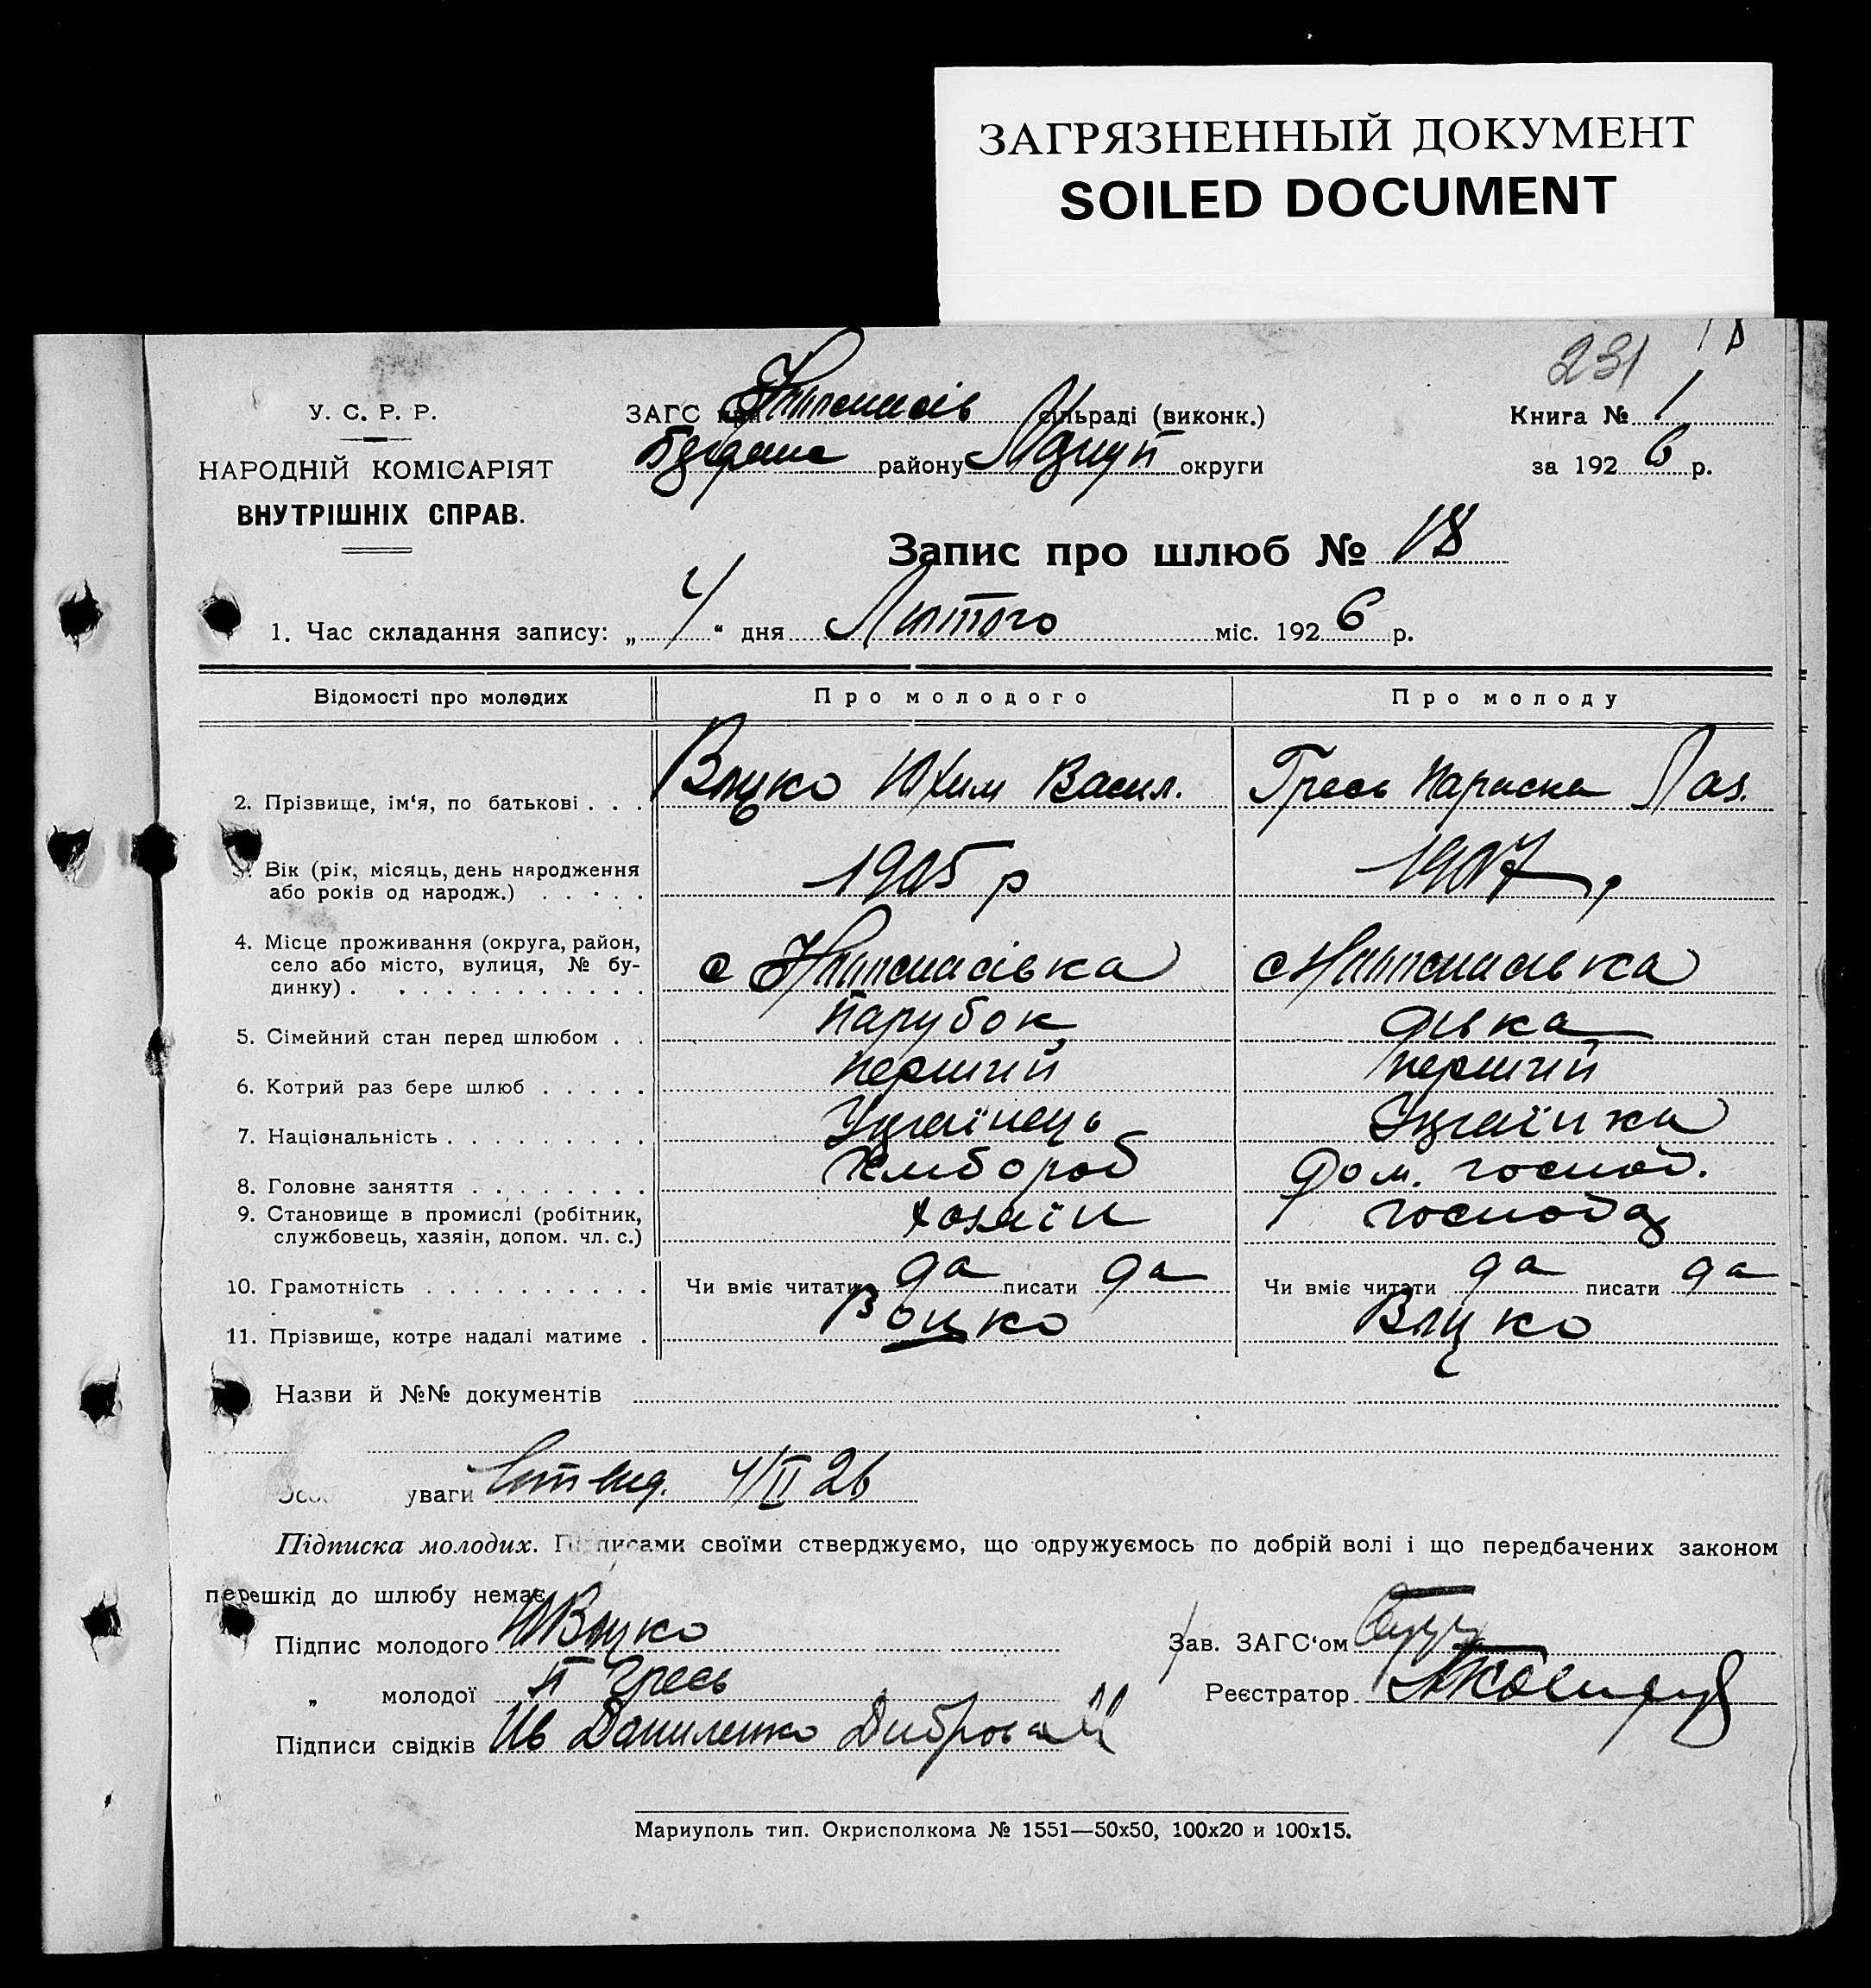 ЗАГРЯЗНЕННЫЙ ДОКУМЕНТ
SOILED DOCUMENT
231
18
У. С. Р. Р.
НАРОДНІЙ КОМІСАРІЯТ
ВНУТРІШНІХ СПРАВ.
ЗАГС при сільраді (виконк.)
району округи
Книга № 1
за 1926 р.
Запис про шлюб № 18
1. Час складання запису: „ 4 “ дня Лютого міс. 1926 р.
Відомості про молодих Про молодого Про молоду
2. Прізвище, ім‘я, по батькові . . . Юхим Васил. Гресь Параска Лаз.
3. Вік (рік, місяць, день народження
або років од народж.) . . . . . 1905 р 1907 р
4. Місце проживання (округа, район,
село або місто, вулиця, № бу-
динку) . . . . . . . . . . . . с с
5. Сімейний стан перед шлюбом . . Парубок дівка
6. Котрий раз бере шлюб . . . . . перший перший
7. Національність . . . . . . . . . Українець Українка
8. Головне заняття . . . . . . . . Хлібороб Дом. господ.
9. Становище в промислі (робітник,
службовець, хазяін, допом. чл. с.) хозяїн
10. Грамотність . . . . . . . . . . Чи вміє читати да писати да Чи вміє читати да писати да
11. Прізвище, котре надалі матиме .
Назви й №№ документів
уваги 4/II 26
Підписка молодих. Підписами своїми стверджуємо, що одружуємось по добрій волі і що передбачених законом
перешкід до шлюбу немає.
Підпис молодого Зав. ЗАГС‘ом
„ молодої П Гресь Реєстратор
Підписи свідків Ив Даниленко Диброва
Мариуполь тип. Окрисполкома № 1551—50х50, 100х20 и 100х15.